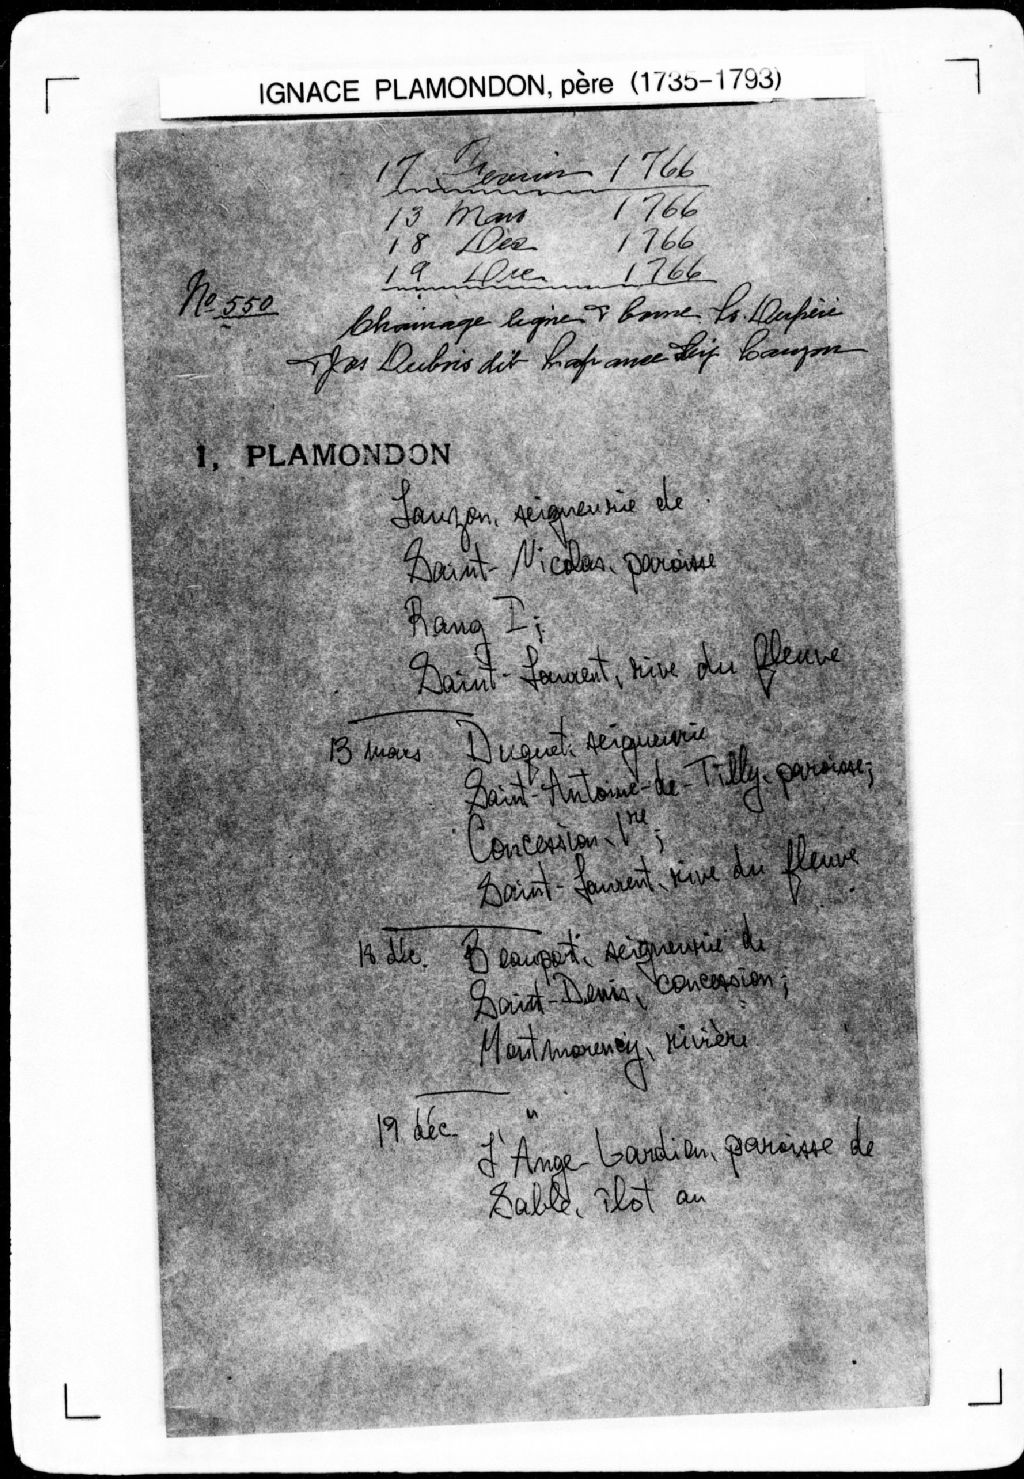 IGNACE PLAMONDON, père (1735-1793)
17 Fevrier 1766
13 Mars 1766
18 Dec 1766
19 Dec 1766
No 550
Chainage ligne & borne Ls. Dupéré
& Jos Dubois dit Lafrance Seig Lauzon
1, PLAMONDON
Lauzon, seigneurie de
Saint-Nicolas, paroisse
Rang I;
Saint-Laurent, rive du fleuve
13 mars Duquet, seigneurie
Saint-Antoine-de-Tilly, paroisse;
Concession, 1re;
Saint-Laurent, rive du fleuve
18 déc. Beauport, seigneurie de
Saint-Denis, concession;
Montmorency, rivière
19 déc. "
L'Ange-Gardien, paroisse de
Sable, îlot au